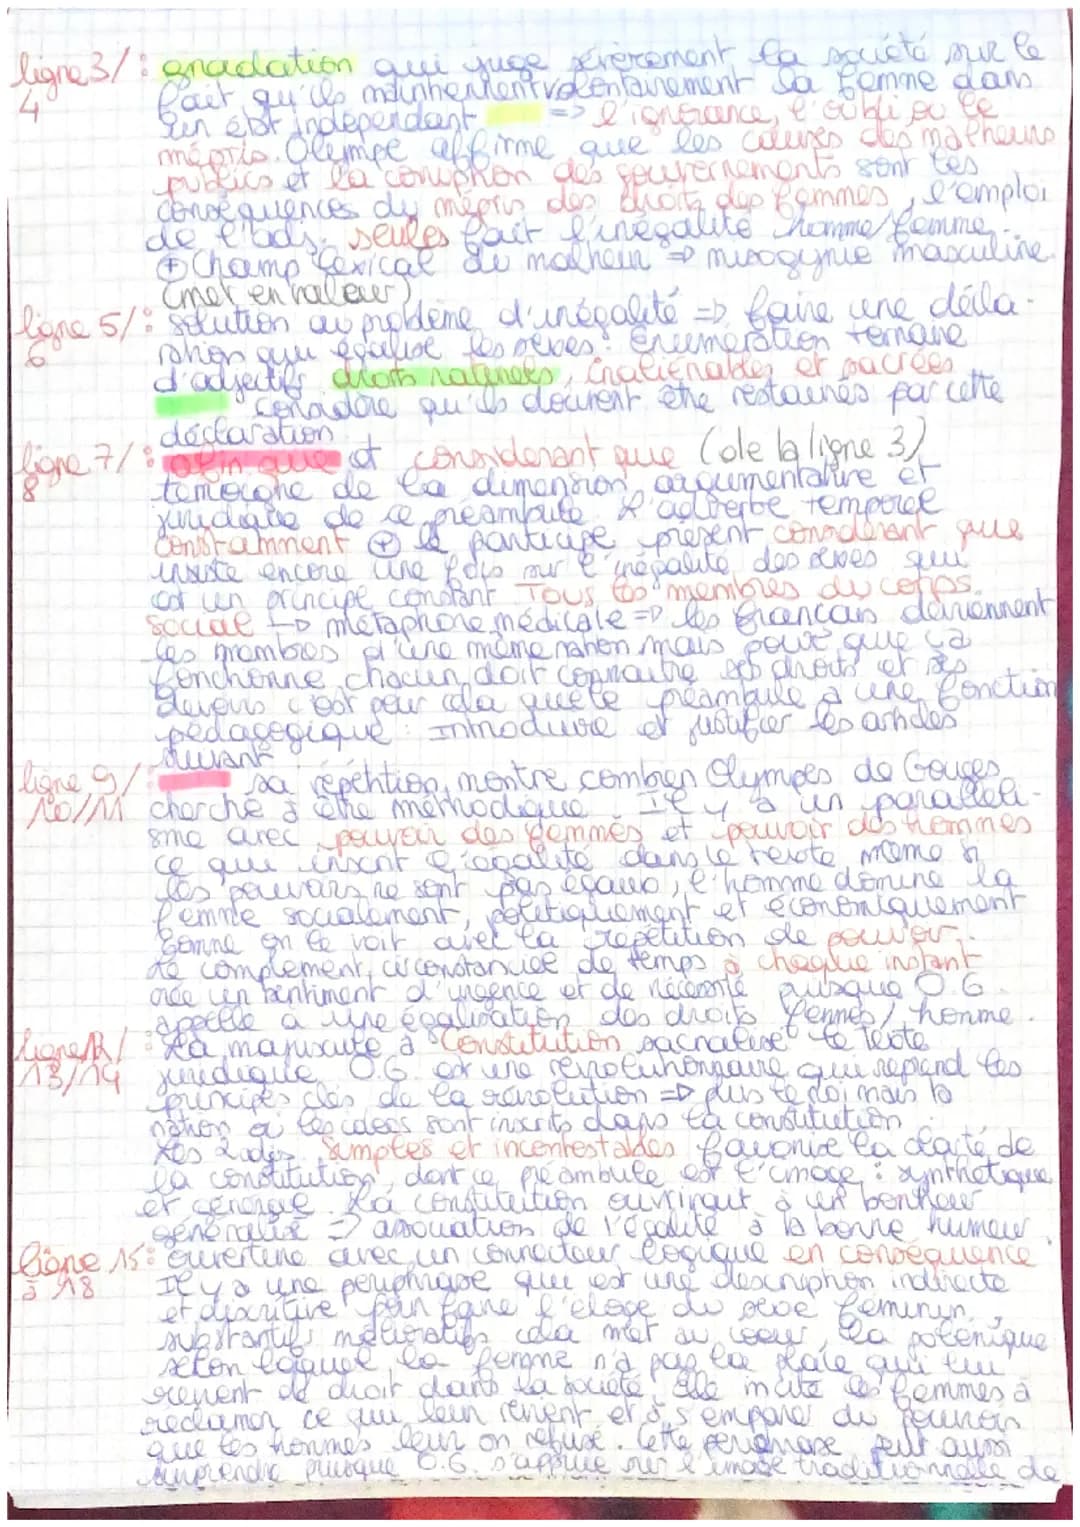 ligne 3/ : gradation qui juge sévèrement la société sur le
4 fait qu'ils maintiennent volontairement la femme dans
un état indépendant => l'ignorance, l'oubli ou le
mépris. Olympe affirme que les causes des malheurs
publics et la corruption des gouvernements sont les
conséquences du mépris des droits des femmes, l'emploi
de l'adj. seules fait l'inégalité homme/femme
⊕ champ lexical du malheur => misogynie masculine
(met en valeur)
ligne 5/ : solution au problème d'inégalité => faire une décla-
6 ration qui égalise les sexes. Énumération ternaire
d'adjectifs droits naturels, inaliénables et sacrées
considère qu'ils doivent être restaurés par cette
déclaration
ligne 7/ : afin que et considerant que (de la ligne 3)
8 témoigne de la dimension argumentative et
juridique de ce préambule. L'adverbe temporel
constamment ⊕ le participe présent considérant que
insiste encore une fois sur l'inégalité des sexes qui
est un principe constant Tous les membres du corps
social -> métaphore médicale => les français deviennent
les membres d'une même nation mais pour que ça
fonctionne chacun doit connaitre ses droits et ses
devoirs c'est pour cela que le préambule a une fonction
pédagogique : introduire et justifier les articles
suivant
ligne 9/ : sa répétition montre combien Olympes de Gouges
10/11 cherche à être méthodique. Il y a un paralléli-
sme avec pouvoir des femmes et pouvoir des hommes
ce qui inscrit l'égalité dans le texte même si
les pouvoirs ne sont pas égaux, l'homme domine la
femme socialement, politiquement et économiquement
comme on le voit avec la répétition de pouvoir.
Le complément circonstanciel de temps à chaque instant
crée un sentiment d'urgence et de nécessité puisque O.G
appelle à une égalisation des droits femmes/homme.
ligne 12/ : La majuscule à Constitution sacralise le texte
13/14 juridique O.G est une révolutionnaire qui reprend les
principes clés de la révolution => plus le roi mais la
nation les idées sont inscrits dans la constitution
Les 2 adjs simples et incontestables favorise la clarté de
la constitution, dont ce préambule est l'image : synthétique
et général. La constitution ouvrirait à un bonheur
généralisé => association de l'égalité à la bonne humeur.
ligne 15 : ouverture avec un connecteur logique en conséquence
à 18 Il y a une périphrase qui est une description indirecte
et pour faire l'éloge du sexe féminin,
substantifs mélioratifs cela met au coeur la polémique
selon laquelle la femme n'a pas la place qui lui
revient de droit dans la société, Elle incite les femmes à
réclamer ce qui leur revient et à s'emparer du pouvoir
que les hommes leur on refusé. Cette périphrase peut aussi
surprendre puisque O.G. s'appuie sur l'image traditionnelle de